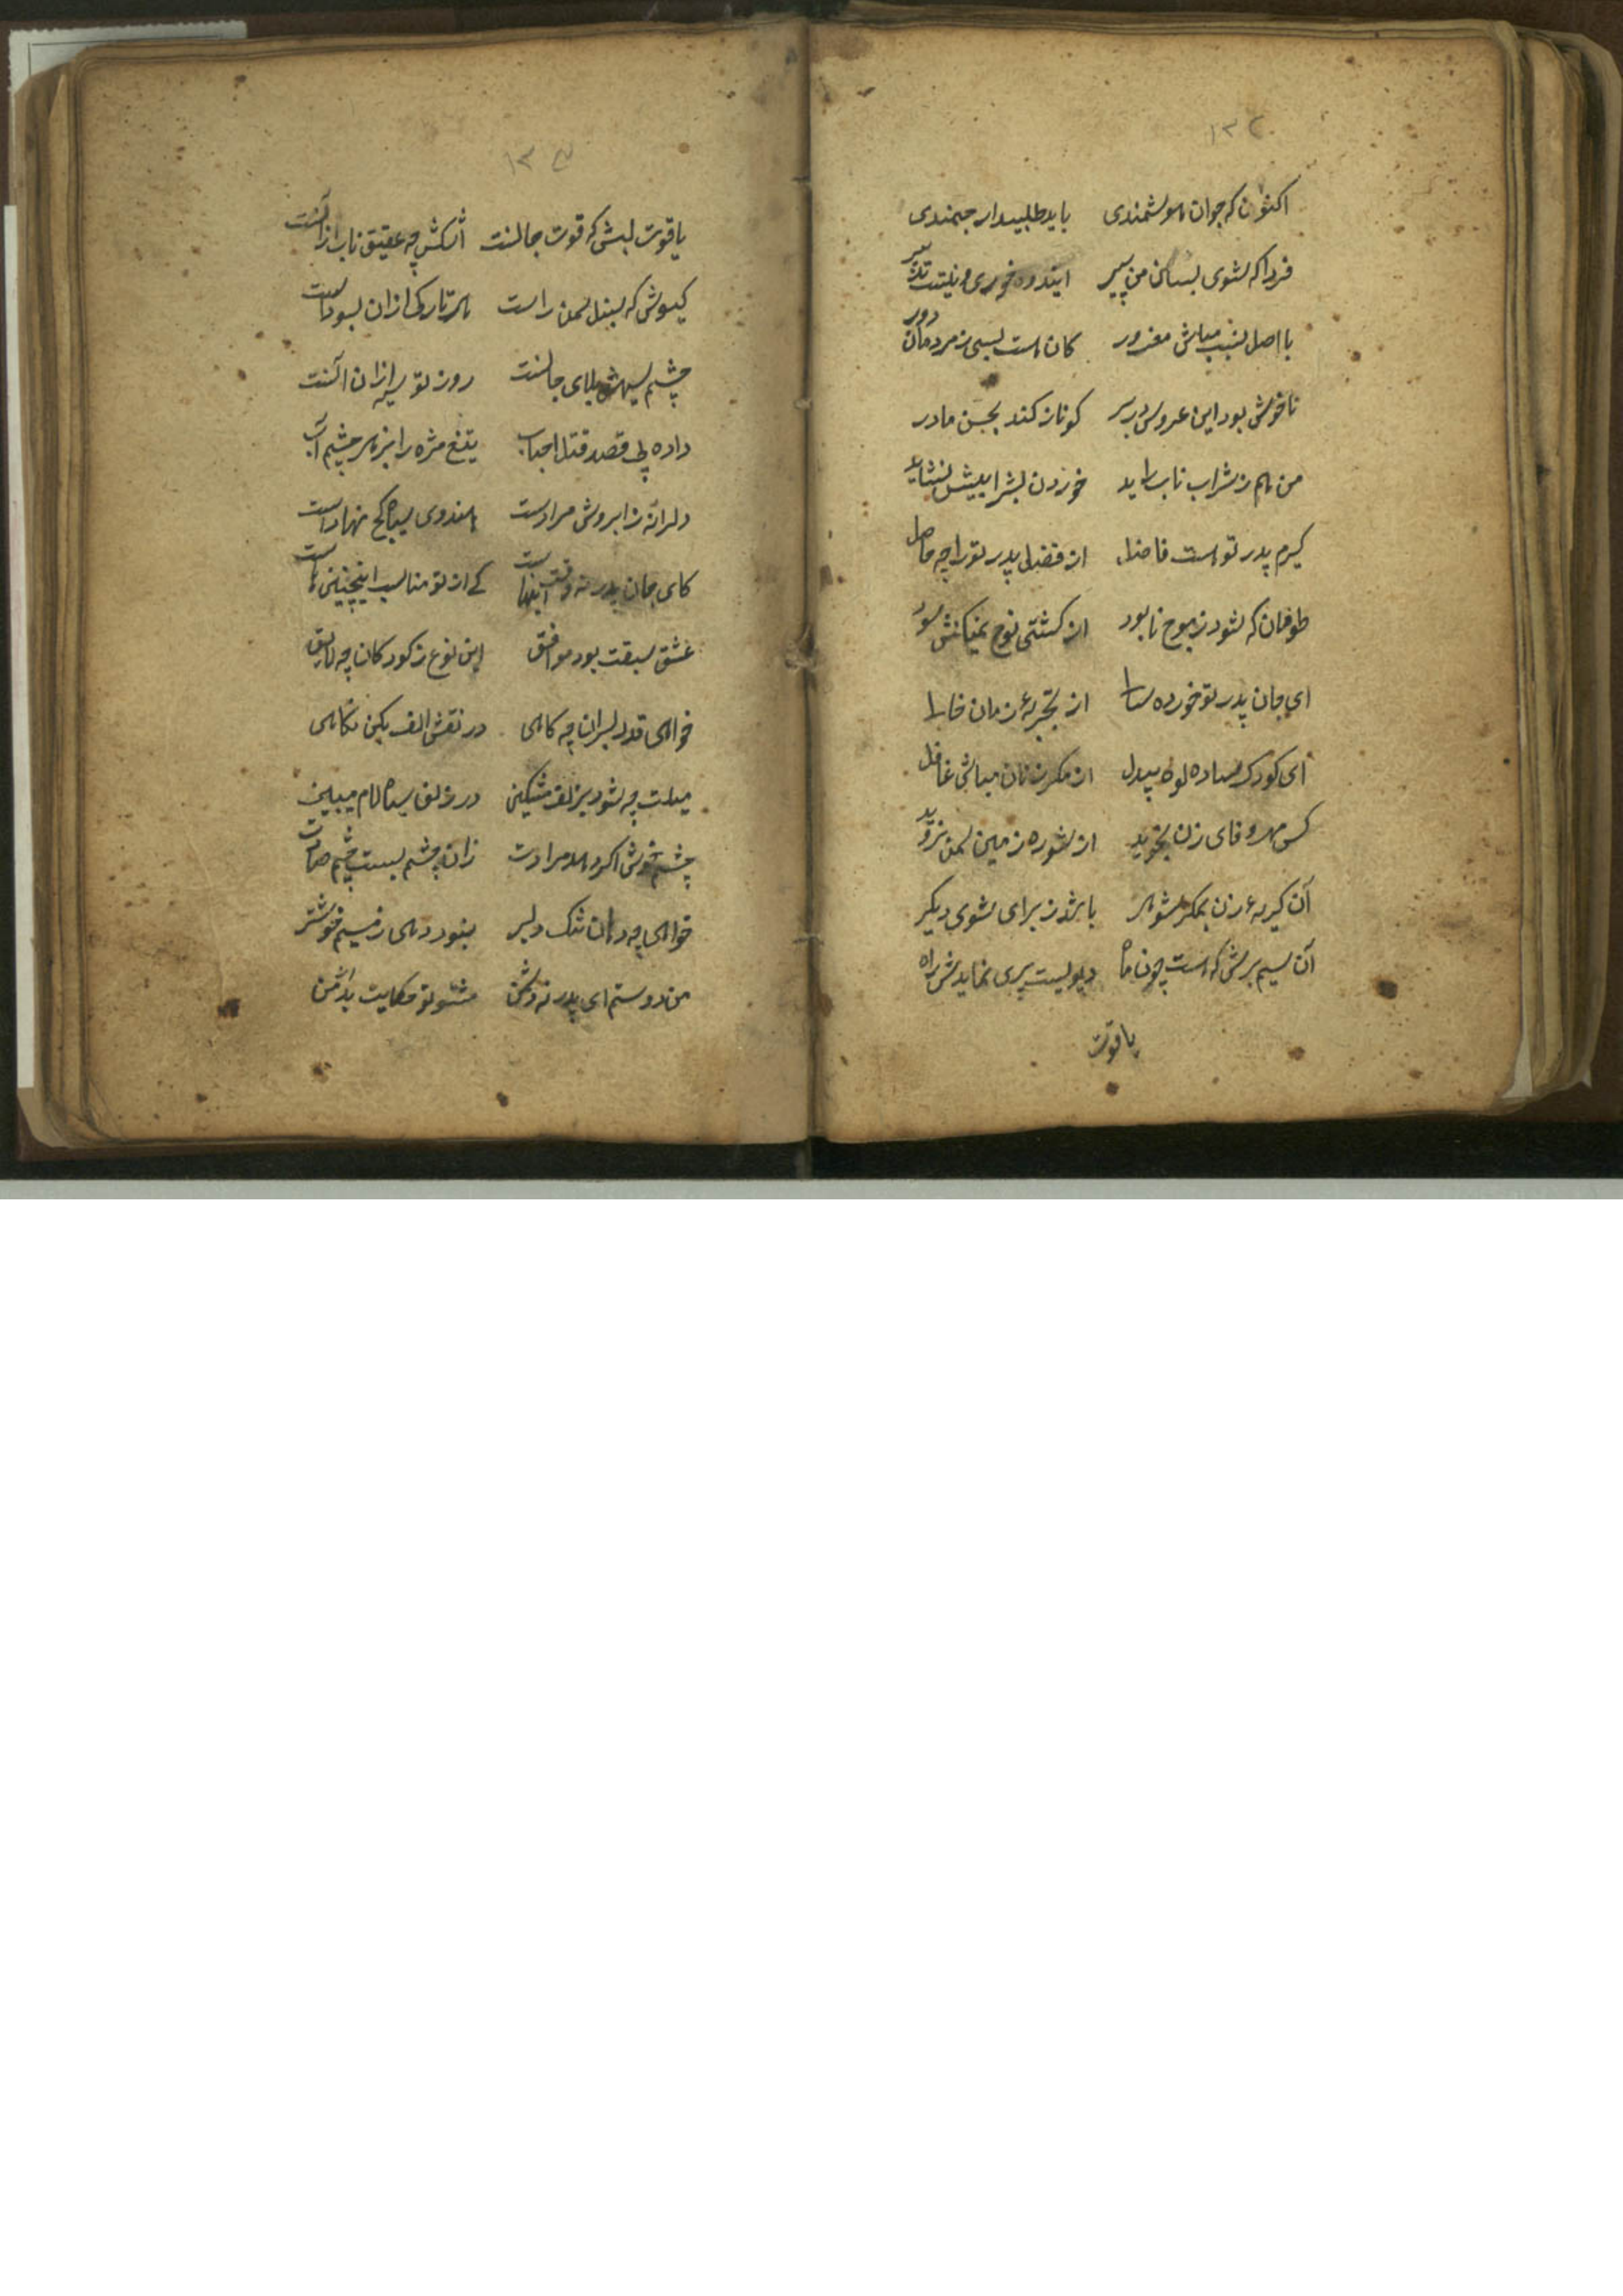 ۱۳۲
اکنون که جوان هوشمندی باید طلبی ارجمندی
فردا که شوی بسان من پیر اندوه خوری و نیست تدبیر
با اصل نسب مباش مغرور کان است بسی ز مردمان دور
ناخوش بود این عروس در بر کو ناز کند بحسن مادر
من هم ز شراب ناب خوردن بشر
کیرم پدر تو است فاضل از فضل پدر تو را چه حاصل
طوفان که شود ز موج نابود از کشتی نوح نمیکندش سود
ای جان پدر تو خورده سالی از تجربهٔ زمان خالی
ای کودک ساده لوح بیدل از مکر زنان مباش غافل
کس مهر و وفای زن نجوید از شوره زمین سمن نروید
آن کریهٔ زن بمکر شوهر باشد ز برای شوی دیکر
آن سیم برش که است چون ماه دیویست پری نمایدش راه
یاقوت
۱۳۳
یاقوت لبش که قوت جانست اشکش چه عقیق ناب از آنست
کیسوش که سنبل سمن راست هر تارکی از آن بسوداست
چشم سیهش بلای جانست روز تو سیه از آن آنست
داده پی قصد قتل احباب تیغ مژه را ز زهر چشم آب
دلرانه ز ابروش مرادست هندوی سیاه کج نهاد است
کای جان پدر نه وقت اینهاست کے از تو مناسب اینچنین هاست
عشق سبقت بود موافق این نوع ز کودکان چه لایق
خواهی قد دلبران چه کاهی در نقش الف بکن نکاهی
میلت چه شود بزلف مشکین در زلف سیاه لام میبین
چشم خوش اکر هم مرادت زان چشم ببست چشم صادت
خواهی چه دهان تنک دلبر بنود دهنی ز میم خوشتر
من دوستم ای پدر نه دشمن مشنو تو حکایت بد از من